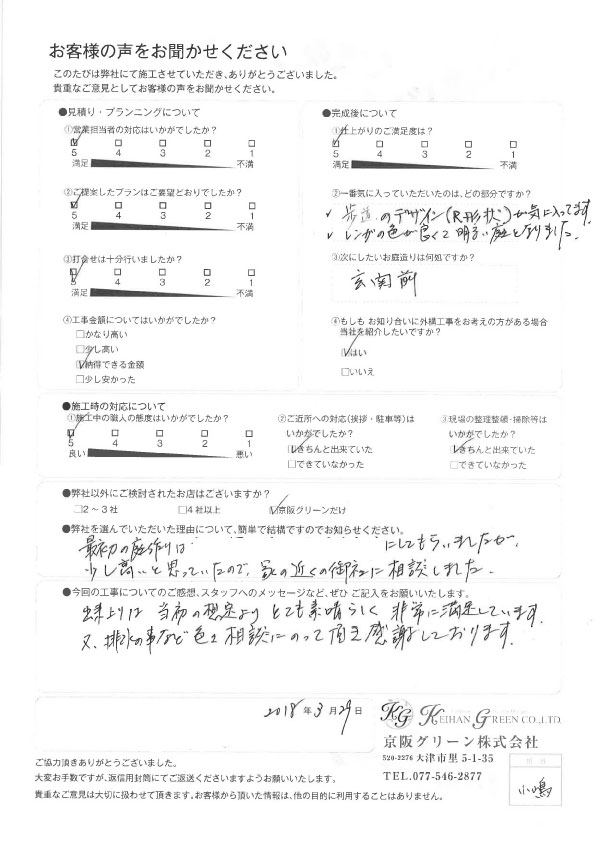 お客様の声をお聞かせください
このたびは弊社にて施工させていただき、ありがとうございました。
貴重なご意見としてお客様の声をお聞かせください。
●見積り・プランニングについて
①営業担当者の対応はいかがでしたか？
5 4 3 2 1
満足 不満
②ご提案したプランはご要望どおりでしたか？
5 4 3 2 1
満足 不満
③打合せは十分行いましたか？
5 4 3 2 1
満足 不満
④工事金額についてはいかがでしたか？
□かなり高い
□少し高い
□納得できる金額
□少し安かった
●完成後について
①仕上がりのご満足度は？
5 4 3 2 1
満足 不満
②一番気に入っていただいたのは、どの部分ですか？
✓ 歩道のデザイン(R形状)が気に入ってます
✓ レンガの色が良くて明るい庭となりました。
③次にしたいお庭造りは何処ですか？
玄関前
④もしも お知り合いに外構工事をお考えの方がある場合
当社を紹介したいですか？
□はい
□いいえ
●施工時の対応について
①施工中の職人の態度はいかがでしたか？
5 4 3 2 1
良い 悪い
②ご近所への対応(挨拶・駐車等)は
いかがでしたか？
□きちんと出来ていた
□できていなかった
③現場の整理整頓・掃除等は
いかがでしたか？
□きちんと出来ていた
□できていなかった
●弊社以外にご検討されたお店はございますか？
□2～3社 □4社以上 □京阪グリーンだけ
●弊社を選んでいただいた理由について、簡単で結構ですのでお知らせください。
最初の庭作りは にしてもらいましたが、
少し高いと思っていたので、家の近くの御社に相談しました。
●今回の工事についてのご感想、スタッフへのメッセージなど、ぜひ ご記入をお願いいたします。
出来上りは 当初の想定より とても素晴らしく 非常に満足しています。
又、排水の事など色々相談にのって頂き感謝しております。
2018年3月29日
KG KEIHAN GREEN CO.,LTD.
京阪グリーン株式会社
520-2276 大津市里 5-1-35
TEL.077-546-2877
ご協力頂きありがとうございました。
大変お手数ですが、返信用封筒にてご返送くださいますようお願いいたします。
貴重なご意見は大切に扱わせて頂きます。お客様から頂いた情報は、他の目的に利用することはありません。
小嶋